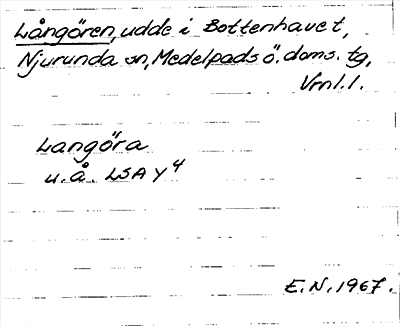 Långören, udde i Bottenhavet,
Njurunda sn, Medelpads ö. doms. tg,
Vrnl. l.
Langöra
u. å. LSA Y 4
E. N. 1967.